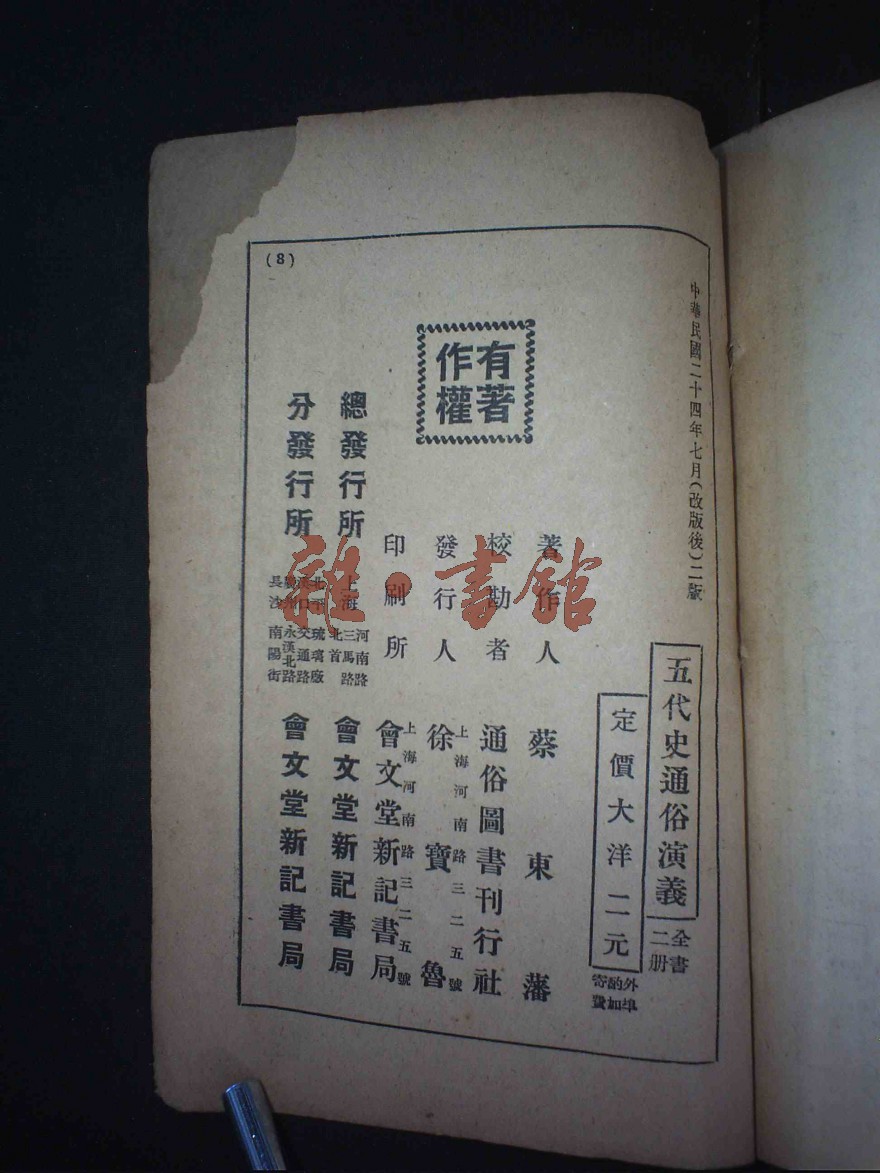 中華民國二十四年七月(改版後)二版
五代史通俗演義
全書
二册
定價大洋二元
外埠
酌加
寄費
有著
作權
著作人 蔡東藩
校勘者 通俗圖書刊行社
上海河南路三二五號
發行人 徐寶魯
上海河南路三二五號
印刷所 會文堂新記書局
總發行所 上海 河南路 三馬路 北首 會文堂新記書局
分發行所 北平 琉璃廠 漢口 交通路 廣州 永漢北路 長沙 南陽街 會文堂新記書局
(8)
雜·書館